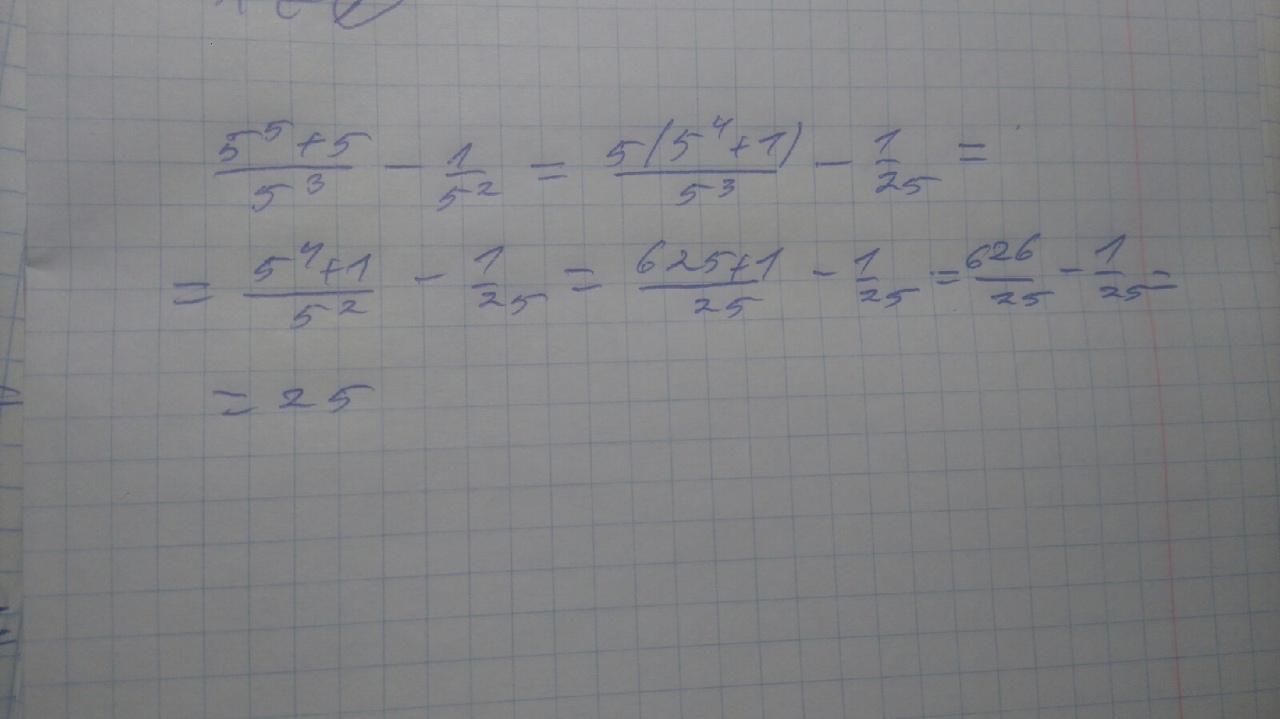 (5^5+5)/5^3 - 1/5^2 = 5(5^4+1)/5^3 - 1/25 =
= (5^4+1)/5^2 - 1/25 = (625+1)/25 - 1/25 = 626/25 - 1/25 =
= 25